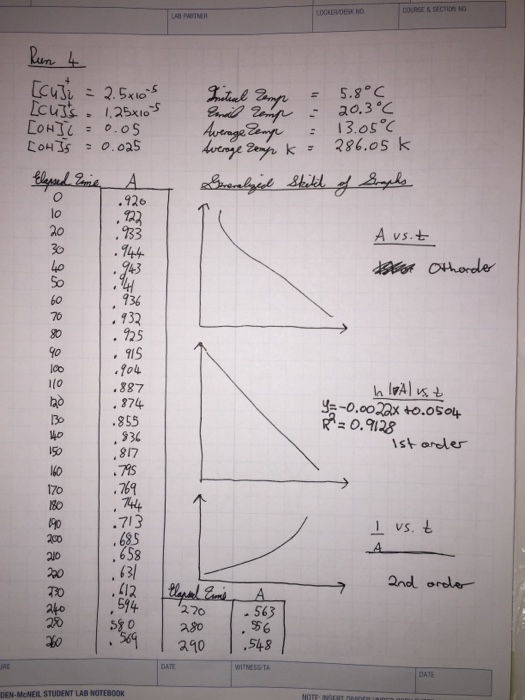 LAB PARTNER
LOCKER/DESK NO.
COURSE & SECTION NO.
Run 4
[CU]i = 2.5x10⁻⁵
[CU]s = 1.25x10⁻⁵
[OH]i = 0.05
[OH]s = 0.025
Initial Temp = 5.8°C
Final Temp = 20.3°C
Average Temp = 13.05°C
Average Temp K = 286.05 K
Elapsed Time A
0 .920
10 .922
20 .933
30 .944
40 .943
50 .941
60 .936
70 .932
80 .925
90 .915
100 .904
110 .887
120 .874
130 .855
140 .836
150 .817
160 .795
170 .769
180 .744
190 .713
200 .685
210 .658
220 .631
230 .612
240 .594
250 580
260 .569
Elapsed Time A
270 .563
280 .556
290 .548
Generalized Sketch of Graphs
A vs. t
0th order
ln |A| vs. t
y=-0.0022x +0.0504
R²= 0.9128
1st order
1/A vs. t
2nd order
DATE
WITNESS/TA
DATE
DEN-McNEIL STUDENT LAB NOTEBOOK